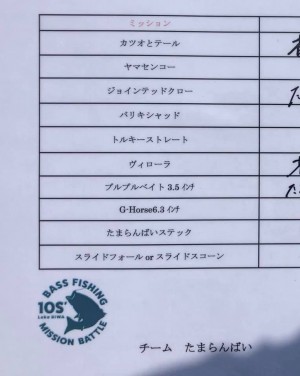 ミッション
カツオとテール
ヤマセンコー
ジョインテッドクロー
バリキシャッド
トルキーストレート
ヴィローラ
ブルブルベイト 3.5 ｲﾝﾁ
G-Horse6.3 ｲﾝﾁ
たまらんばいステック
スライドフォール or スライドスコーン
BASS FISHING
10S'
Lake BIWA
MISSION BATTLE
チーム　たまらんばい